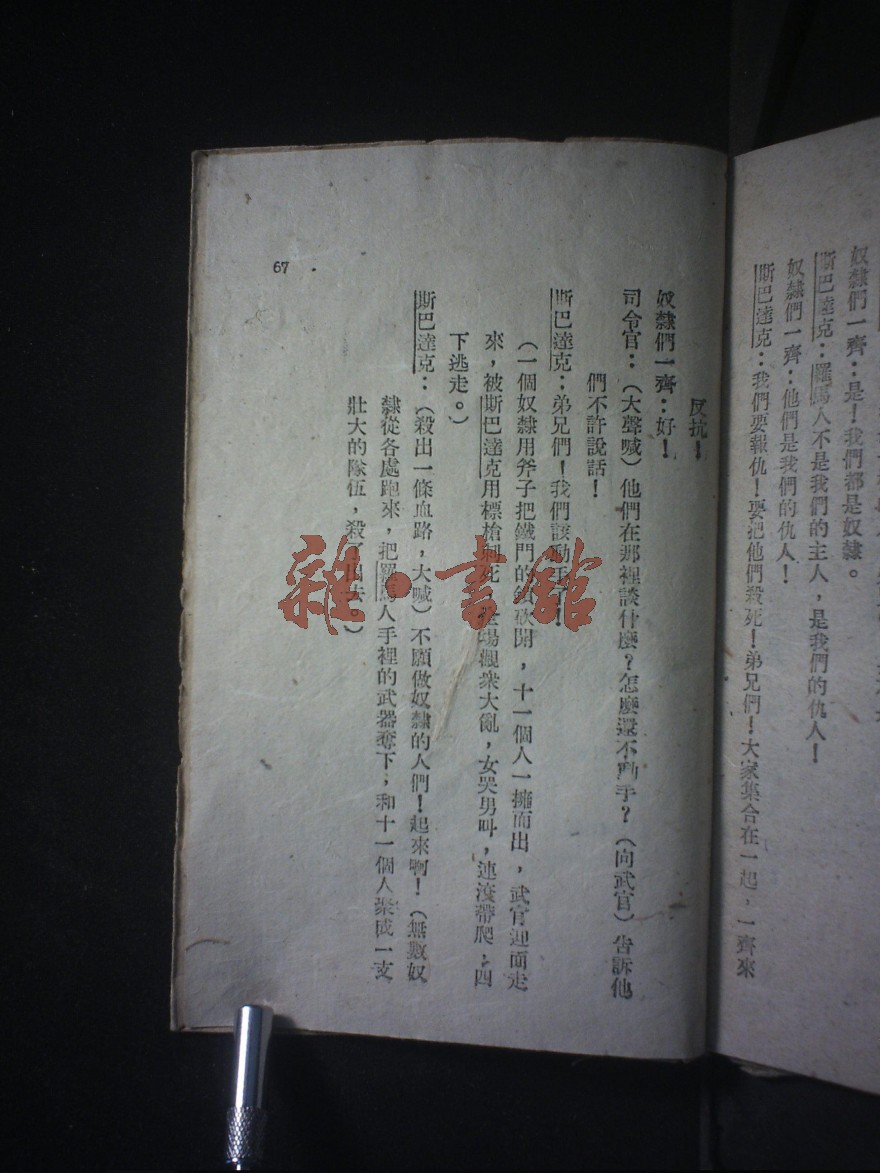 奴隸們一齊：是！我們都是奴隸。
斯巴達克：羅馬人不是我們的主人，是我們的仇人！
奴隸們一齊：他們是我們的仇人！
斯巴達克：我們要報仇！要把他們殺死！弟兄們！大家集合在一起，一齊來
反抗！
奴隸們一齊：好！
司令官：（大聲喊）他們在那裡談什麼？怎麼還不動手？（向武官）告訴他
們不許說話！
斯巴達克：弟兄們！我們該動手了！
（一個奴隸用斧子把鐵門的鎖砍開，十一個人一擁而出，武官迎面走
來，被斯巴達克用標槍刺死，全場觀衆大亂，女哭男叫，連滾帶爬，四
下逃走。）
斯巴達克：（殺出一條血路，大喊）不願做奴隸的人們！起來啊！（無數奴
隸從各處跑來，把羅馬人手裡的武器奪下，和十一個人聚成一支
壯大的隊伍，殺了出去。）
67
雜·書館